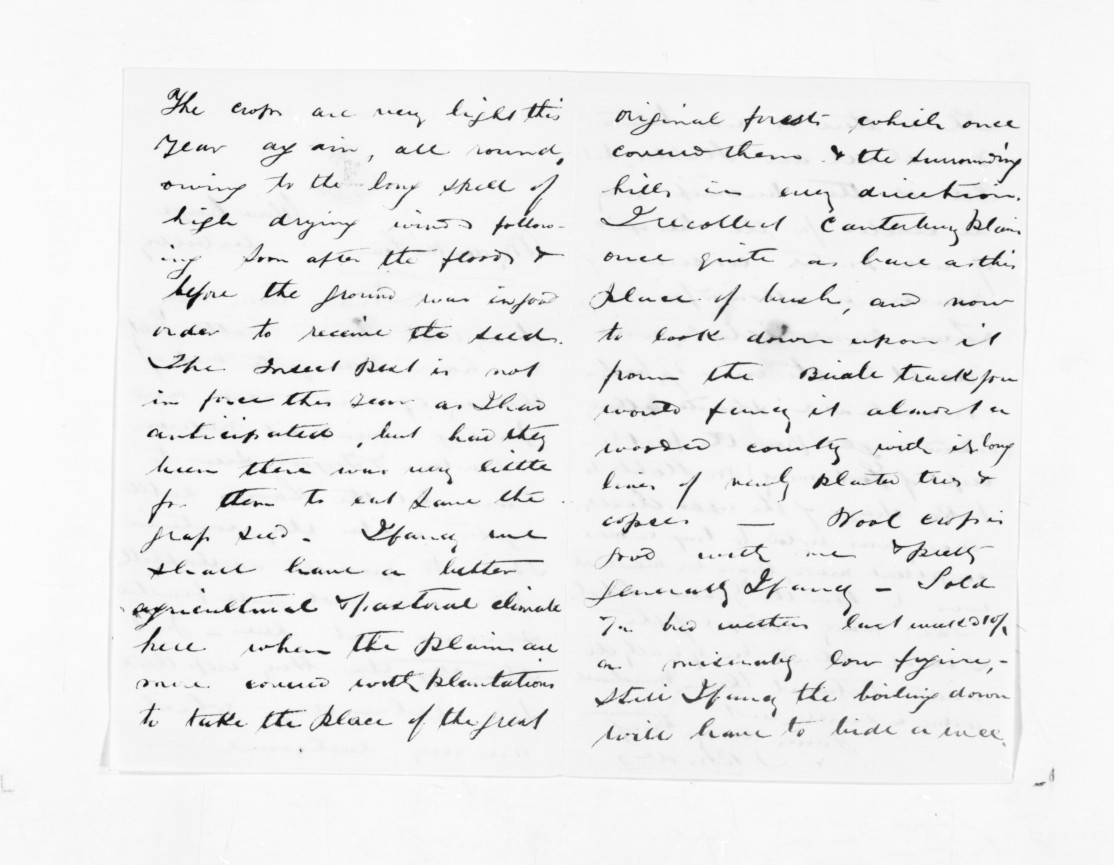 The crops are very light this
year again, all round,
owing to the long spell of
high drying winds follow-
ing soon after the floods &
before the ground was in good
order to receive the seed.
The Insect Pest is not
in force this year as I had
anticipated, but had they
been there was very little
for them to eat save the
grass seed - I fancy we
shall have a better
agricultural & pastoral climate
here when the plains are
more covered with plantations
to take the place of the great
original forests which once
covered them & the surrounding
hills in every direction.
I recollect Canterbury Plains
once quite as bare as this
place of bush, and now
to look down upon it
from the Bridle track you
would fancy it almost a
wooded country with its long
lines of newly planted trees &
copses — Wool crop is
good with me & pretty
generally I fancy - Sold
my wethers last week @ 10/.
a miserably low figure, -
still I fancy the boiling down
will have to bide a wee.